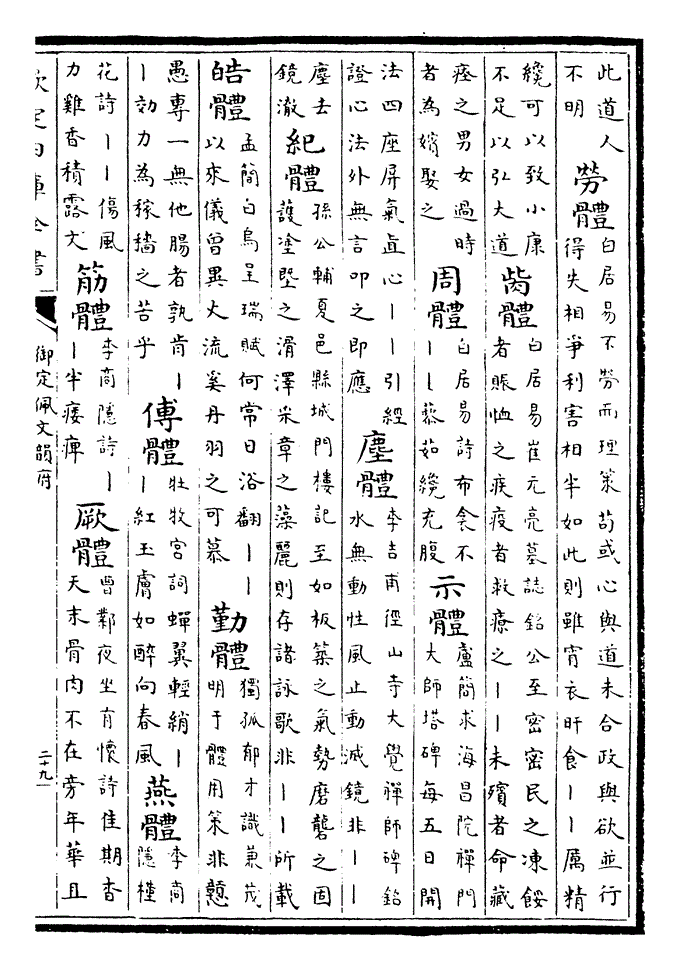 此道人
不明
勞體
白居易不勞而理策苟或心與道未合政與欲並行
得失相爭利害相半如此則雖宵衣旰食丨丨厲精
纔可以致小康
不足以弘大道
胔體
白居易崔元亮墓誌銘公至密密民之凍餒
者賑恤之疾疫者救療之丨丨未殯者命藏
瘞之男女過時
者為嫁娶之
周體
白居易詩布衾不
丨丨藜茹纔充腹
示體
盧簡求海昌院禪門
大師塔碑每五日開
法四座屏氣直心丨丨引經
證心法外無言叩之即應
塵體
李吉甫徑山寺大覺禪師碑銘
水無動性風止動滅鏡非丨丨
塵去
鏡澈
紀體
孫公輔夏邑縣城門樓記至如板築之氣勢磨礱之固
護塗塈之滑澤采章之藻麗則存諸詠歌非丨丨所載
皓體
孟簡白烏呈瑞賦何常日浴翻丨丨
以來儀曾異火流奚丹羽之可慕
勤體
獨孤郁才識兼茂
明于體用策非憩
愚專一無他腸者孰肯丨
丨効力為稼穡之苦乎
傅體
牡牧宮詞蟬翼輕綃丨
丨紅玉膚如醉向春風
燕體
李商
隱槿
花詩丨丨傷風
力雞香積露文
筋體
李商隱詩丨
丨半痿痺
厥體
曹鄴夜坐有懷詩佳期杳
天末骨肉不在旁年華且
欽定四庫全書
御定佩文韻府
二十九